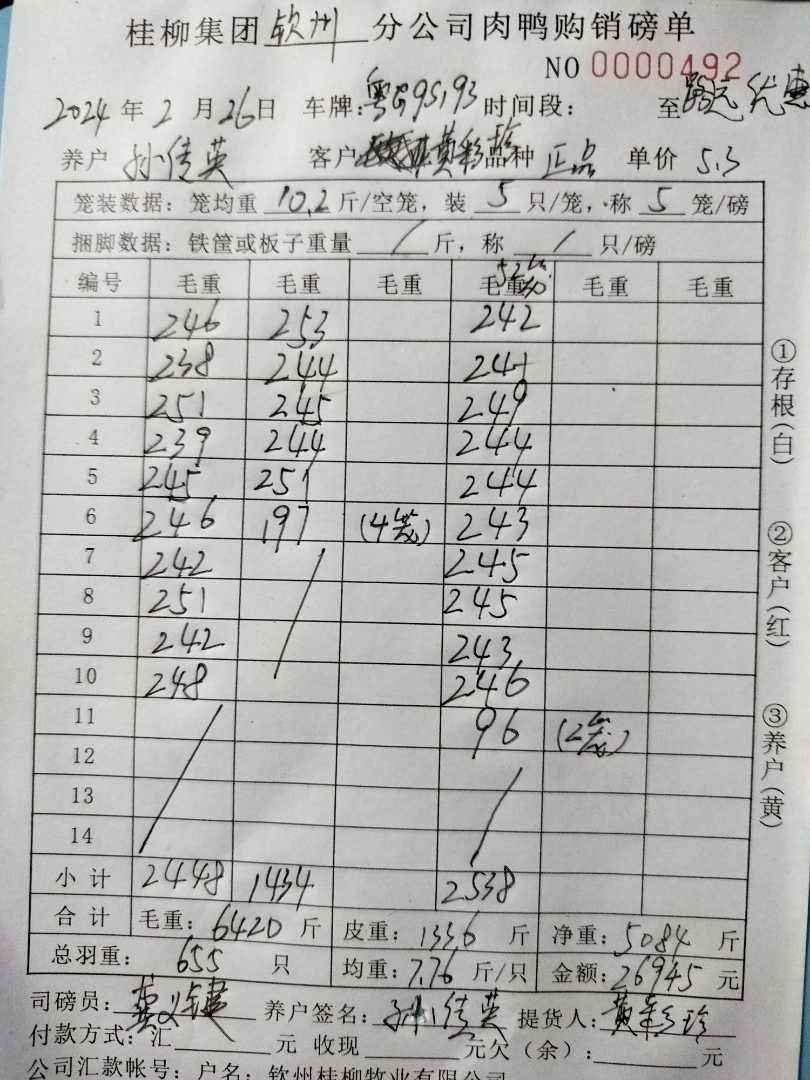 桂柳集团 钦州 分公司肉鸭购销磅单
NO 0000492
2024 年 2 月 26 日 车牌: 时间段: 至
养户 孙传英 客户 黄彩珍 品种 正品 单价 5.3
笼装数据: 笼均重 10.2 斤/空笼, 装 5 只/笼, 称 5 笼/磅
捆脚数据: 铁筐或板子重量 / 斤, 称 / 只/磅
编号 毛重 毛重 毛重 毛重 毛重 毛重
1 246 253 242
2 238 244 241
3 251 245 249
4 239 244 244
5 245 251 244
6 246 197 (4笼) 243
7 242 245
8 251 245
9 242 243
10 248 246
11 96 (2笼)
12
13
14
小计 2448 1434 2538
合计 毛重: 6420 斤 皮重: 1336 斤 净重: 5084 斤
总羽重: 655 只 均重: 7.76 斤/只 金额: 26945 元
司磅员: 养户签名: 孙传英 提货人: 黄彩珍
付款方式: 汇 元 收现 元欠(余): 元
公司汇款帐号: 户名: 钦州桂柳牧业有限公司
①存根(白)
②客户(红)
③养户(黄)